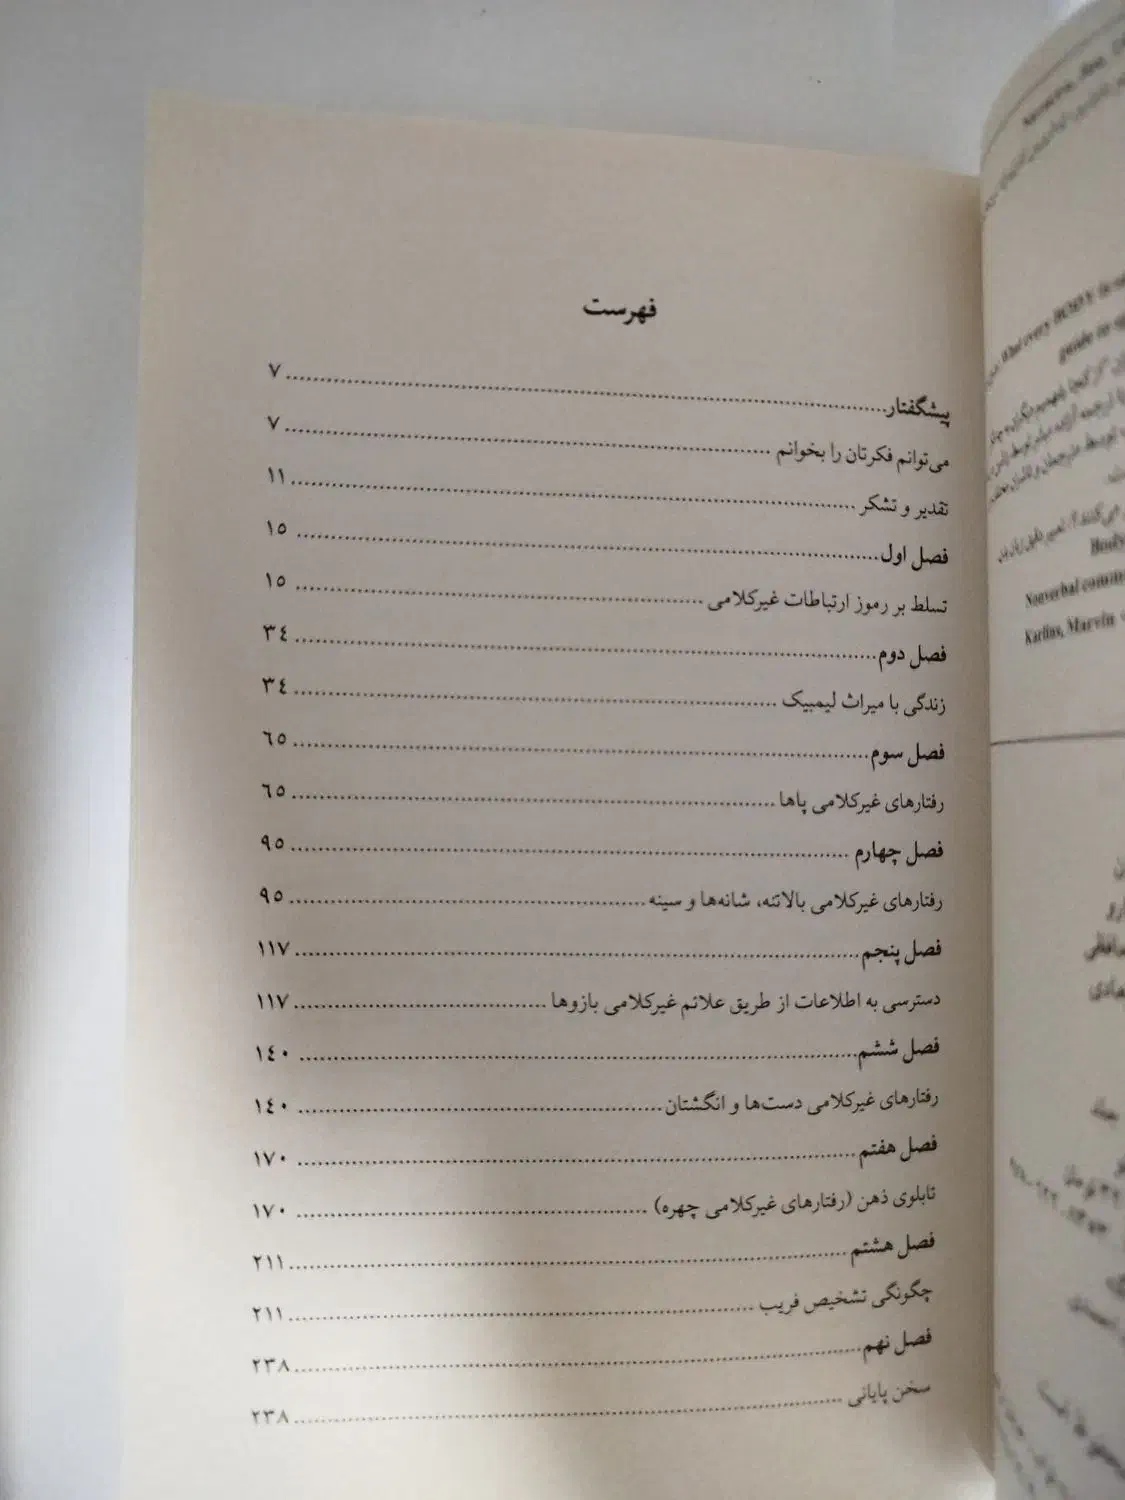 فهرست
پیشگفتار........................................................................ ۷
می‌توانم فکرتان را بخوانم ........................................................................ ۷
تقدیر و تشکر ........................................................................ ۱۱
فصل اول........................................................................ ۱۵
تسلط بر رموز ارتباطات غیرکلامی ........................................................................ ۱۵
فصل دوم........................................................................ ۳٤
زندگی با میراث لیمبیک ........................................................................ ۳٤
فصل سوم........................................................................ ٦۵
رفتارهای غیرکلامی پاها ........................................................................ ٦۵
فصل چهارم ........................................................................ ۹۵
رفتارهای غیرکلامی بالاتنه، شانه‌ها و سینه ........................................................................ ۹۵
فصل پنجم........................................................................ ۱۱۷
دسترسی به اطلاعات از طریق علائم غیرکلامی بازوها ........................................................................ ۱۱۷
فصل ششم........................................................................ ۱٤۰
رفتارهای غیرکلامی دست‌ها و انگشتان........................................................................ ۱٤۰
فصل هفتم ........................................................................ ۱۷۰
تابلوی ذهن (رفتارهای غیرکلامی چهره) ........................................................................ ۱۷۰
فصل هشتم ........................................................................ ۲۱۱
چگونگی تشخیص فریب ........................................................................ ۲۱۱
فصل نهم........................................................................ ۲۳۸
سخن پایانی ........................................................................ ۲۳۸
What every BODY is
guide to
Body
Nonverbal
Karlins, Marvin